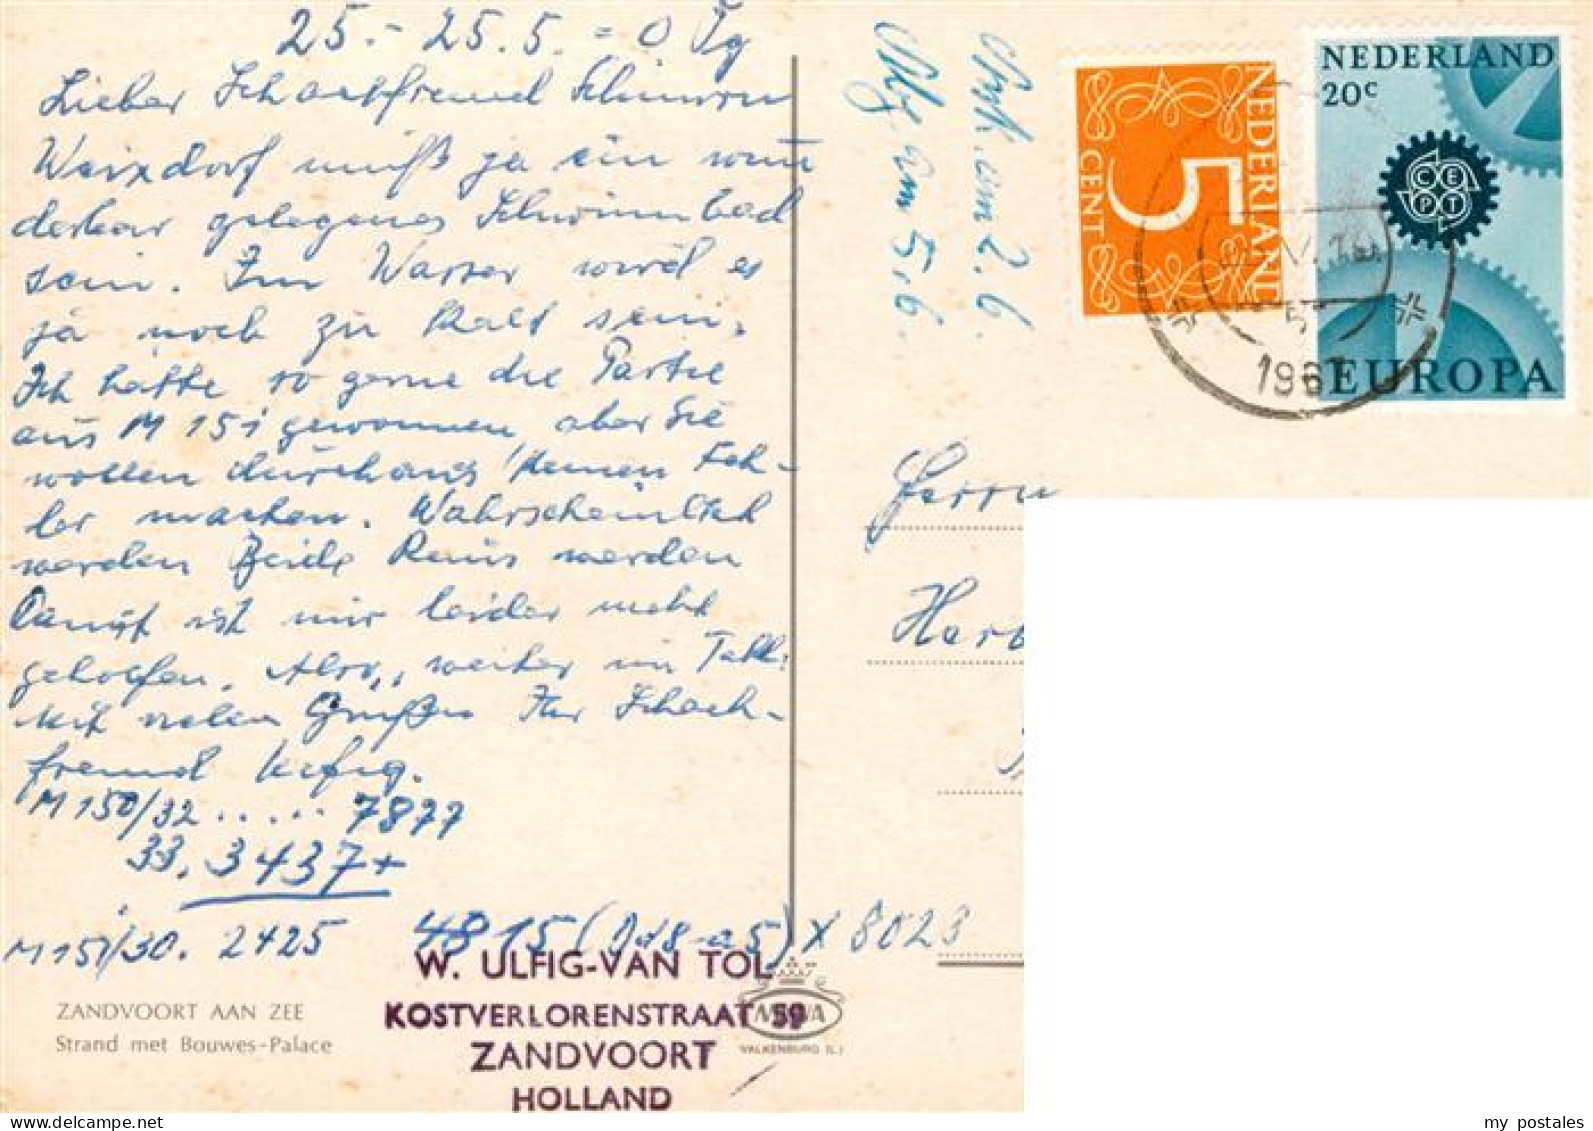 25. - 25. 5. = 0 Tg
Lieber Schachfreund
Weixdorf muß ja ein wun
derbar gelegenes Schwimmbad
sein. Im Wasser wird es
ja noch zu kalt sein.
Ich hätte so gerne die Partie
aus M 151 gewonnen, aber Sie
wollen durchaus keinen Feh-
ler machen. Wahrscheinlich
werden Beide Remis werden
Dampf ist mir leider nicht
geholfen. Also, weiter im Text!
Mit vielen Grüßen Ihr Schach-
freund
M 150/32 ..... 7877
33. 3437+
M 151/30. 2425 4815 (Dd8-a5) X 8023
ZANDVOORT AAN ZEE
Strand met Bouwes-Palace
W. ULFIG-VAN TOL
KOSTVERLORENSTRAAT 59
ZANDVOORT
HOLLAND
VALKENBURG (L.)
am 2.6.
am 5.6.
NEDERLAND
5
CENT
NEDERLAND
20c
CEPT
EUROPA
1967
Herrn
my postales